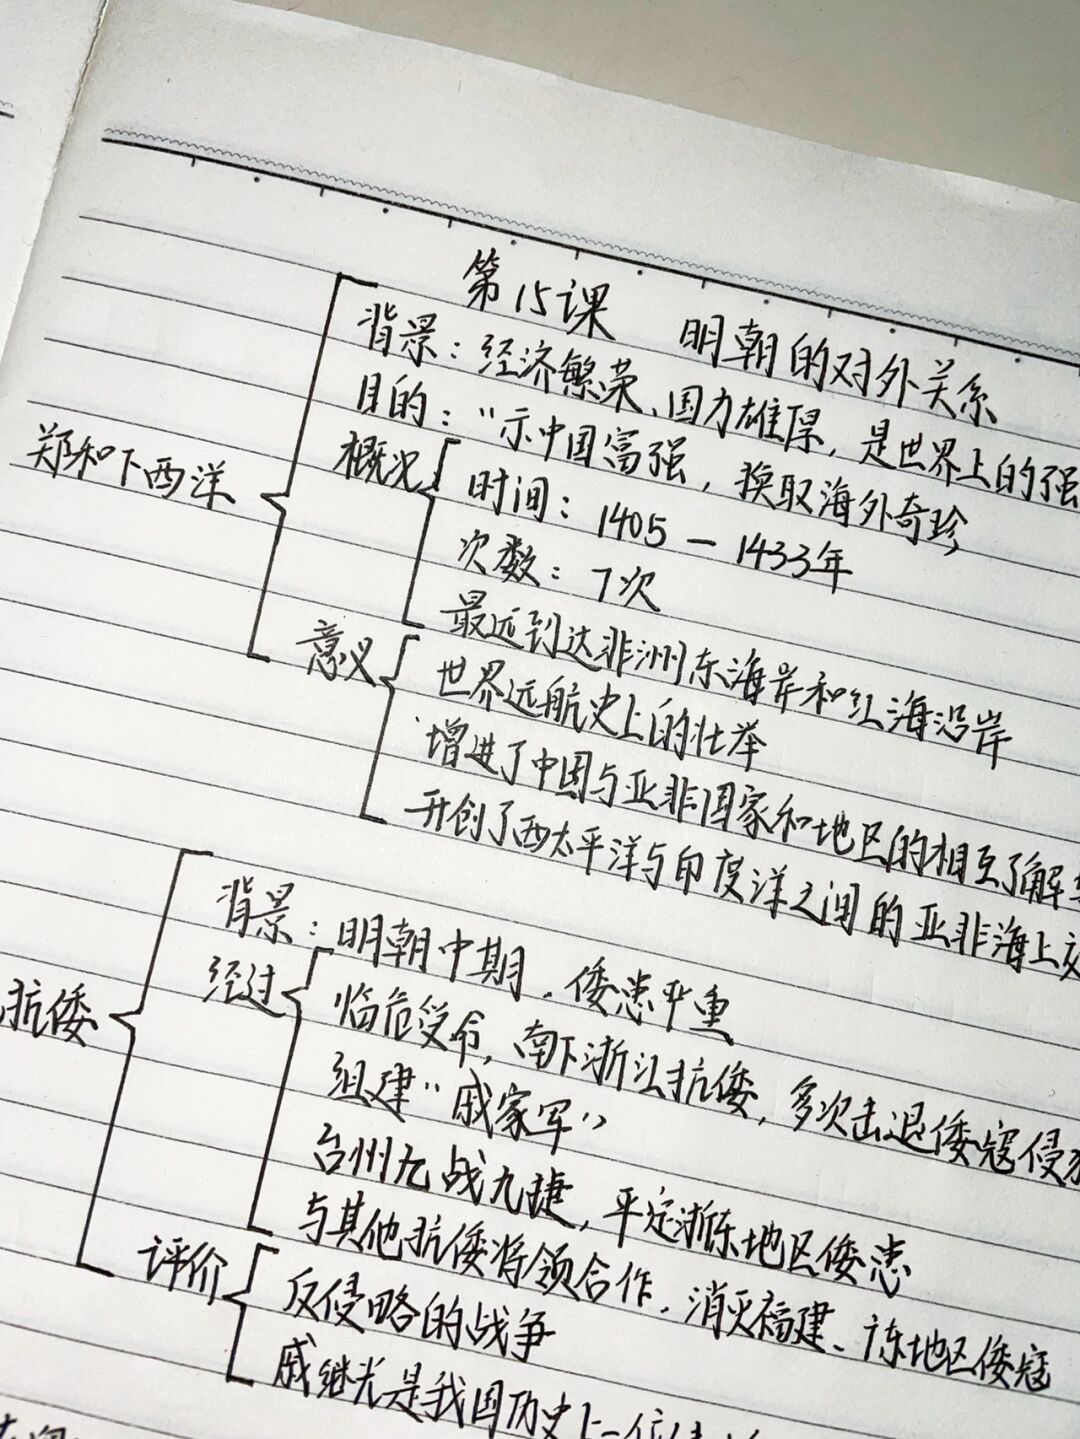 第15课 明朝的对外关系
背景：经济繁荣、国力雄厚，是世界上的强
目的："示中国富强，换取海外奇珍
郑和下西洋
概况
时间：1405－1433年
次数：7次
最远到达非洲东海岸和红海沿岸
意义
世界远航史上的壮举
增进了中国与亚非国家和地区的相互了解
开创了西太平洋与印度洋之间的亚非海上交
抗倭
背景：明朝中期，倭患严重
经过
临危受命，南下浙江抗倭，多次击退倭寇侵
组建"戚家军"
台州九战九捷，平定浙东地区倭患
与其他抗倭将领合作，消灭福建、广东地区倭寇
评价
反侵略的战争
戚继光是我国历史上一位